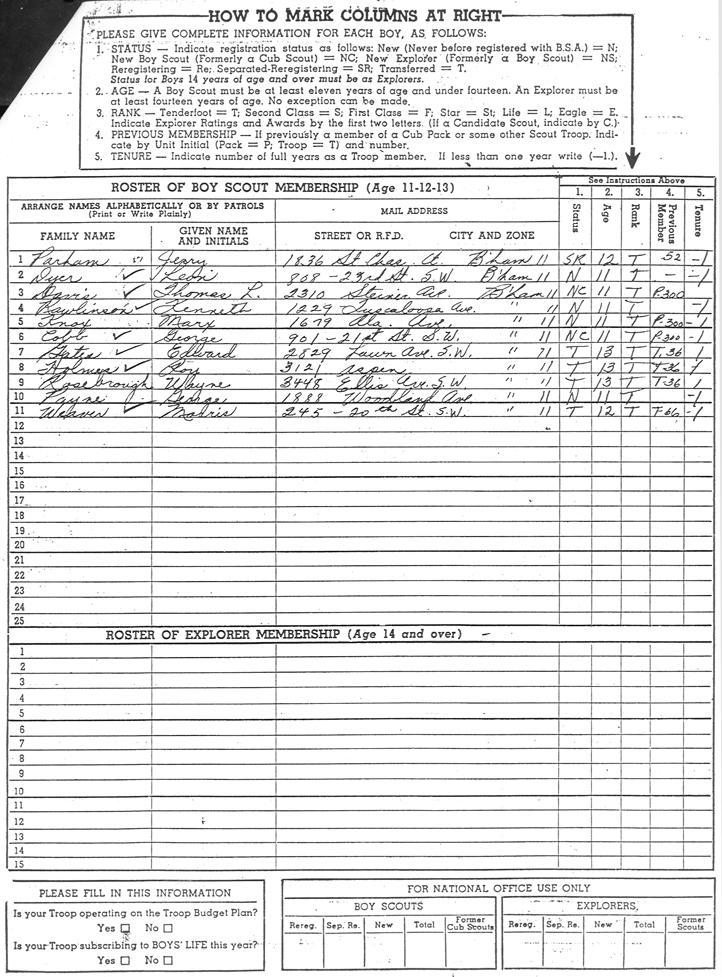 HOW TO MARK COLUMNS AT RIGHT
PLEASE GIVE COMPLETE INFORMATION FOR EACH BOY, AS FOLLOWS:
1. STATUS — Indicate registration status as follows: New (Never before registered with B.S.A.) = N;
New Boy Scout (Formerly a Cub Scout) = NC; New Explorer (Formerly a Boy Scout) = NS;
Reregistering = Re; Separated-Reregistering = SR; Transferred = T.
Status for Boys 14 years of age and over must be as Explorers.
2. AGE — A Boy Scout must be at least eleven years of age and under fourteen. An Explorer must be
at least fourteen years of age. No exception can be made.
3. RANK — Tenderfoot = T; Second Class = S; First Class = F; Star = St; Life = L; Eagle = E.
Indicate Explorer Ratings and Awards by the first two letters. (If a Candidate Scout, indicate by C.)
4. PREVIOUS MEMBERSHIP — If previously a member of a Cub Pack or some other Scout Troop. Indi-
cate by Unit Initial (Pack = P; Troop = T) and number.
5. TENURE — Indicate number of full years as a Troop member. If less than one year write (—1.)
ROSTER OF BOY SCOUT MEMBERSHIP (Age 11-12-13)
See Instructions Above
ARRANGE NAMES ALPHABETICALLY OR BY PATROLS
(Print or Write Plainly)
MAIL ADDRESS
1. 2. 3. 4. 5.
FAMILY NAME GIVEN NAME AND INITIALS STREET OR R.F.D. CITY AND ZONE Status Age Rank Previous Member Tenure
1 Parham Jerry 1836 St Chas. B'ham 11 SR 12 T 52 -1
2 Dyer ✓ Leon 808 - 23rd St. S.W. B'ham 11 N 11 T — -1
3 Davis ✓ Thomas L. 2310 Steiner Ave. B'ham 11 NC 11 T P.300
4 Rawlinson ✓ Kenneth 1229 Tuscaloosa Ave. " 11 N 11 T -1
5 Knox Marx 1679 Ala. Ave. " 11 N 11 T P.300 -1
6 Cobb ✓ George 901 - 21st St. S.W. " 11 NC 11 T P.300 -1
7 Gates ✓ Edward 2829 Lawn Ave. S.W. " 11 T 13 T T.36 1
8 Holmes ✓ Roy 3121 Aspen " 11 T 13 T T-36 1
9 Rosebrough Wayne 3448 Ellis Ave. S.W. " 11 T 13 T T-36 1
10 Payne George 1888 Woodland Ave. " 11 N 11 T -1
11 Weaver ✓ Morris 245 - 20th St. S.W. " 11 T 12 T T-66 -1
12
13
14
15
16
17
18
19
20
21
22
23
24
25
ROSTER OF EXPLORER MEMBERSHIP (Age 14 and over)
1
2
3
4
5
6
7
8
9
10
11
12
13
14
15
PLEASE FILL IN THIS INFORMATION
Is your Troop operating on the Troop Budget Plan?
Yes ☐ No ☐
Is your Troop subscribing to BOYS' LIFE this year?
Yes ☐ No ☐
FOR NATIONAL OFFICE USE ONLY
BOY SCOUTS EXPLORERS,
Rereg. Sep. Re. New Total Former Cub Scouts Rereg. Sep. Re. New Total Former Scouts